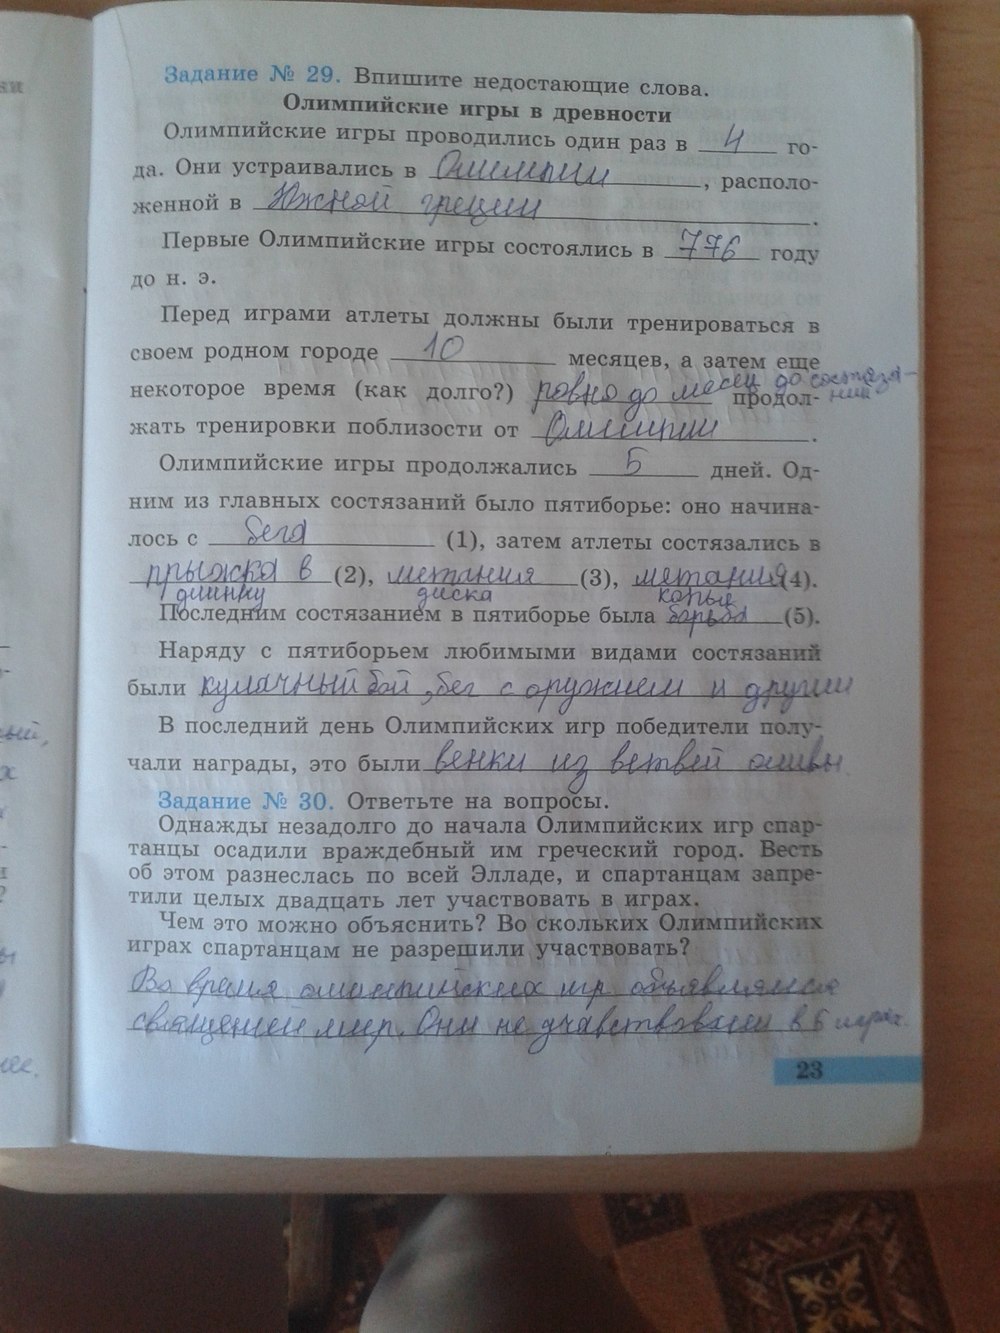 Задание № 29. Впишите недостающие слова.
Олимпийские игры в древности
Олимпийские игры проводились один раз в 4 го-
да. Они устраивались в Олимпии, располо-
женной в Южной греции.
Первые Олимпийские игры состоялись в 776 году
до н. э.
Перед играми атлеты должны были тренироваться в
своем родном городе 10 месяцев, а затем еще
некоторое время (как долго?) ровно до месец до состяза-
ний продол-
жать тренировки поблизости от Олимпии.
Олимпийские игры продолжались 5 дней. Од-
ним из главных состязаний было пятиборье: оно начина-
лось с бега (1), затем атлеты состязались в
прыжка в (2), метания (3), метания (4).
длинку диска копья
Последним состязанием в пятиборье была борьба (5).
Наряду с пятиборьем любимыми видами состязаний
были кулачный бой, бег с оружием и другии
В последний день Олимпийских игр победители полу-
чали награды, это были венки из ветвей оливы.
Задание № 30. Ответьте на вопросы.
Однажды незадолго до начала Олимпийских игр спар-
танцы осадили враждебный им греческий город. Весть
об этом разнеслась по всей Элладе, и спартанцам запре-
тили целых двадцать лет участвовать в играх.
Чем это можно объяснить? Во скольких Олимпийских
играх спартанцам не разрешили участвовать?
Во время олимпийских игр объявлялся
священей мир. Они не учавствовали в 6 играх.
23